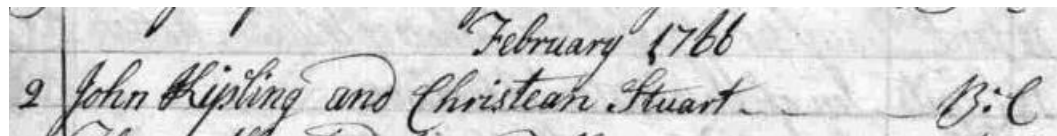 February 1766
2 John Kipling and Christean Stuart B: C